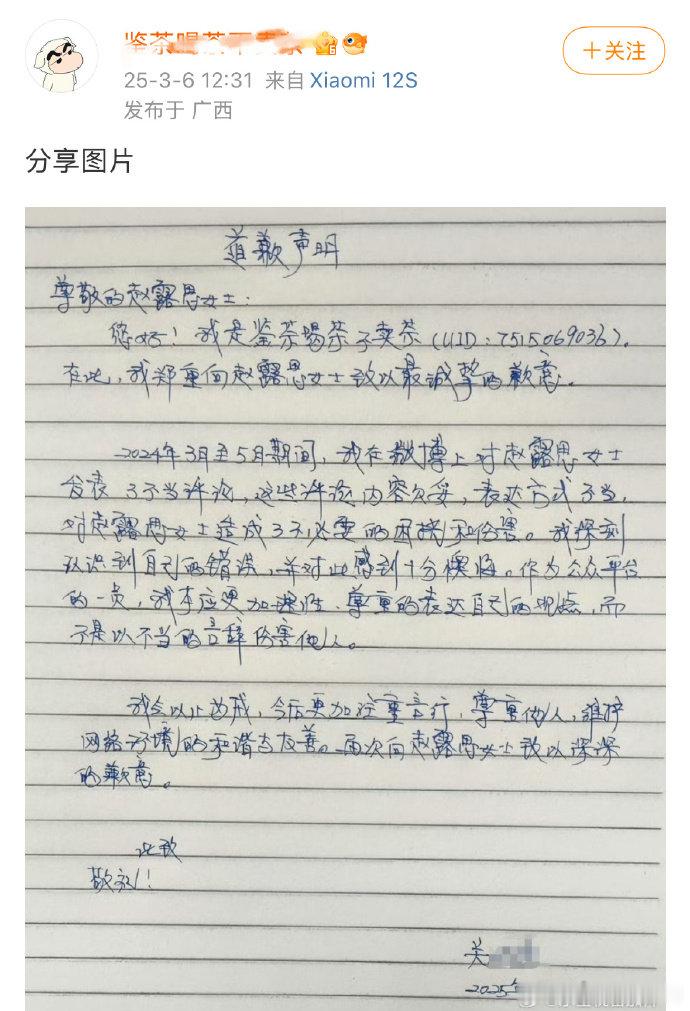 25-3-6 12:31 来自 Xiaomi 12S
发布于 广西
+关注
分享图片
道歉声明
尊敬的赵露思女士:
您好!我是鉴茶喝茶不卖茶(UID:7515069036),
在此,我郑重向赵露思女士致以最诚挚的歉意。
2024年3月至5月期间,我在微博上对赵露思女士
发表了不当评论,这些评论内容欠妥,表达方式不当,
对赵露思女士造成了不必要的困扰和伤害。我深刻
认识到自己的错误,并对此感到十分懊悔。作为公众平台
的一员,我本应更加理性、尊重的表达自己的观点,而
不是以不当的言辞伤害他人。
我会以此为戒,今后更加注重言行,尊重他人,维护
网络环境的和谐与友善。再次向赵露思女士致以深深
的歉意。
此致
敬礼!
关
2025年